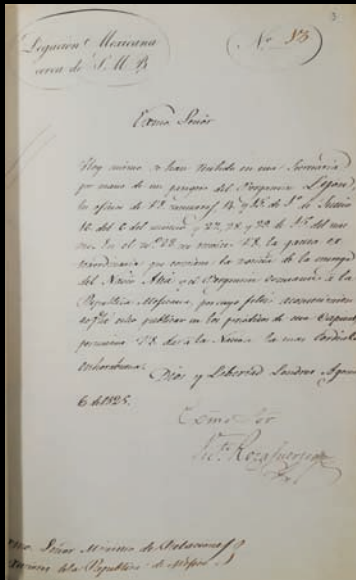 3
Legacion Mexicana
cerca de S. M. B.
Nº 55
Exmo. Señor
Hoy mismo se han recibido en esta Secretaria
por mano de un pasagero del Bergantin
los oficios de V.E. numeros 14 y 15 de 1º de Junio
16 del 6 del mismo y 22, 28 y 29 de 15 del mes
En el nº 28 se remite V.E. la gaceta ex
traordinaria que contiene la noticia de la entrega
del Navio Asia y el Bergantin Constante a la
Republica Mexicana, por cuyo feliz acontecimiento
publicar en los periodicos de esta Capital
V.E. dar a la Nacion la mas Cordial
enhorabuena.
Dios y Libertad Londres Agosto
6 de 1825.
Exmo Sor
Vic.te Rocafuerte
Exmo. Señor Ministro de Relaciones
de la Republica de Mexico